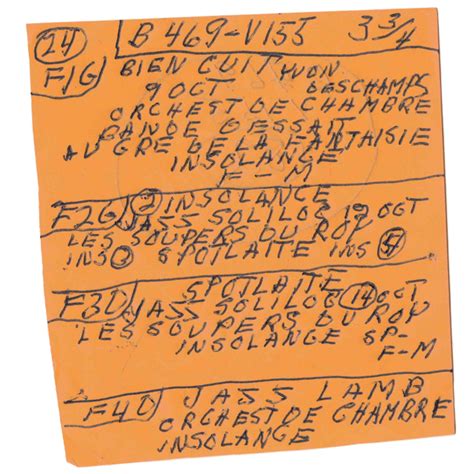 24 B 469-V155 3 3/4
F1G BIEN CUIT YVON
9 OCT DESCHAMPS
ORCHEST DE CHAMBRE
BANDE DESSAIT
AU GRE DE LA FANTAISIE
INSOLANGE
F-M
F2G 2 INSOLANGE
JASS SOLILOG 19 OCT
LES SOUPERS DU ROY
INS 2 SPOTLAITE INS
F3D SPOTLAITE
JASS SOLILOG 14 OCT
LES SOUPERS DU ROY
INSOLANGE SP-
F-M
F4D JASS LAMB
ORCHEST DE CHAMBRE
INSOLANGE